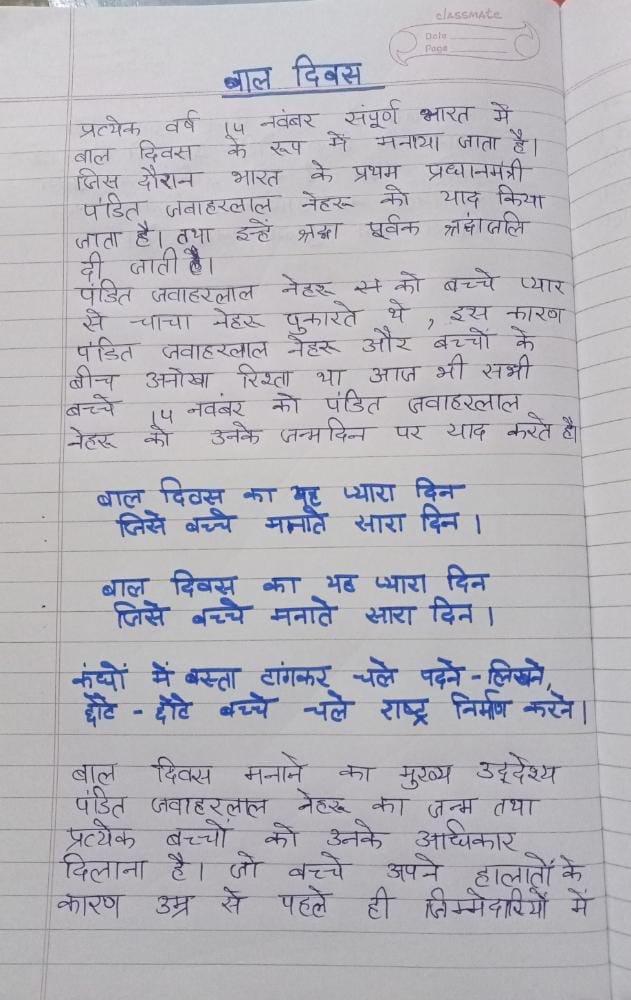 classmate
Date
Page
बाल दिवस
प्रत्येक वर्ष 14 नवंबर संपूर्ण भारत में
बाल दिवस के रूप में मनाया जाता है।
जिस दौरान भारत के प्रथम प्रधानमंत्री
पंडित जवाहरलाल नेहरू को याद किया
जाता है। तथा इन्हें श्रद्धा पूर्वक श्रद्धांजलि
दी जाती है।
पंडित जवाहरलाल नेहरू स को बच्चे प्यार
से चाचा नेहरू पुकारते थे , इस कारण
पंडित जवाहरलाल नेहरू और बच्चों के
बीच अनोखा रिश्ता था आज भी सभी
बच्चे 14 नवंबर को पंडित जवाहरलाल
नेहरू को उनके जन्मदिन पर याद करते है।
बाल दिवस का यह प्यारा दिन
जिसे बच्चे मनाते सारा दिन।
बाल दिवस का यह प्यारा दिन
जिसे बच्चे मनाते सारा दिन।
कंधों में बस्ता टांगकर चले पढने - लिखने,
छोटे - छोटे बच्चे चले राष्ट्र निर्माण करने।
बाल दिवस मनाने का मुख्य उद्देश्य
पंडित जवाहरलाल नेहरू का जन्म तथा
प्रत्येक बच्चों को उनके अधिकार
दिलाना है। जो बच्चे अपने हालातों के
कारण उम्र से पहले ही जिम्मेदारियों में